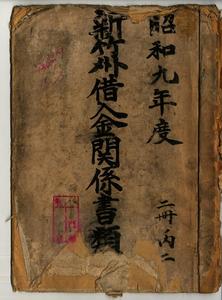 昭和九年度
新竹州借入金関係書類
二冊ノ内二